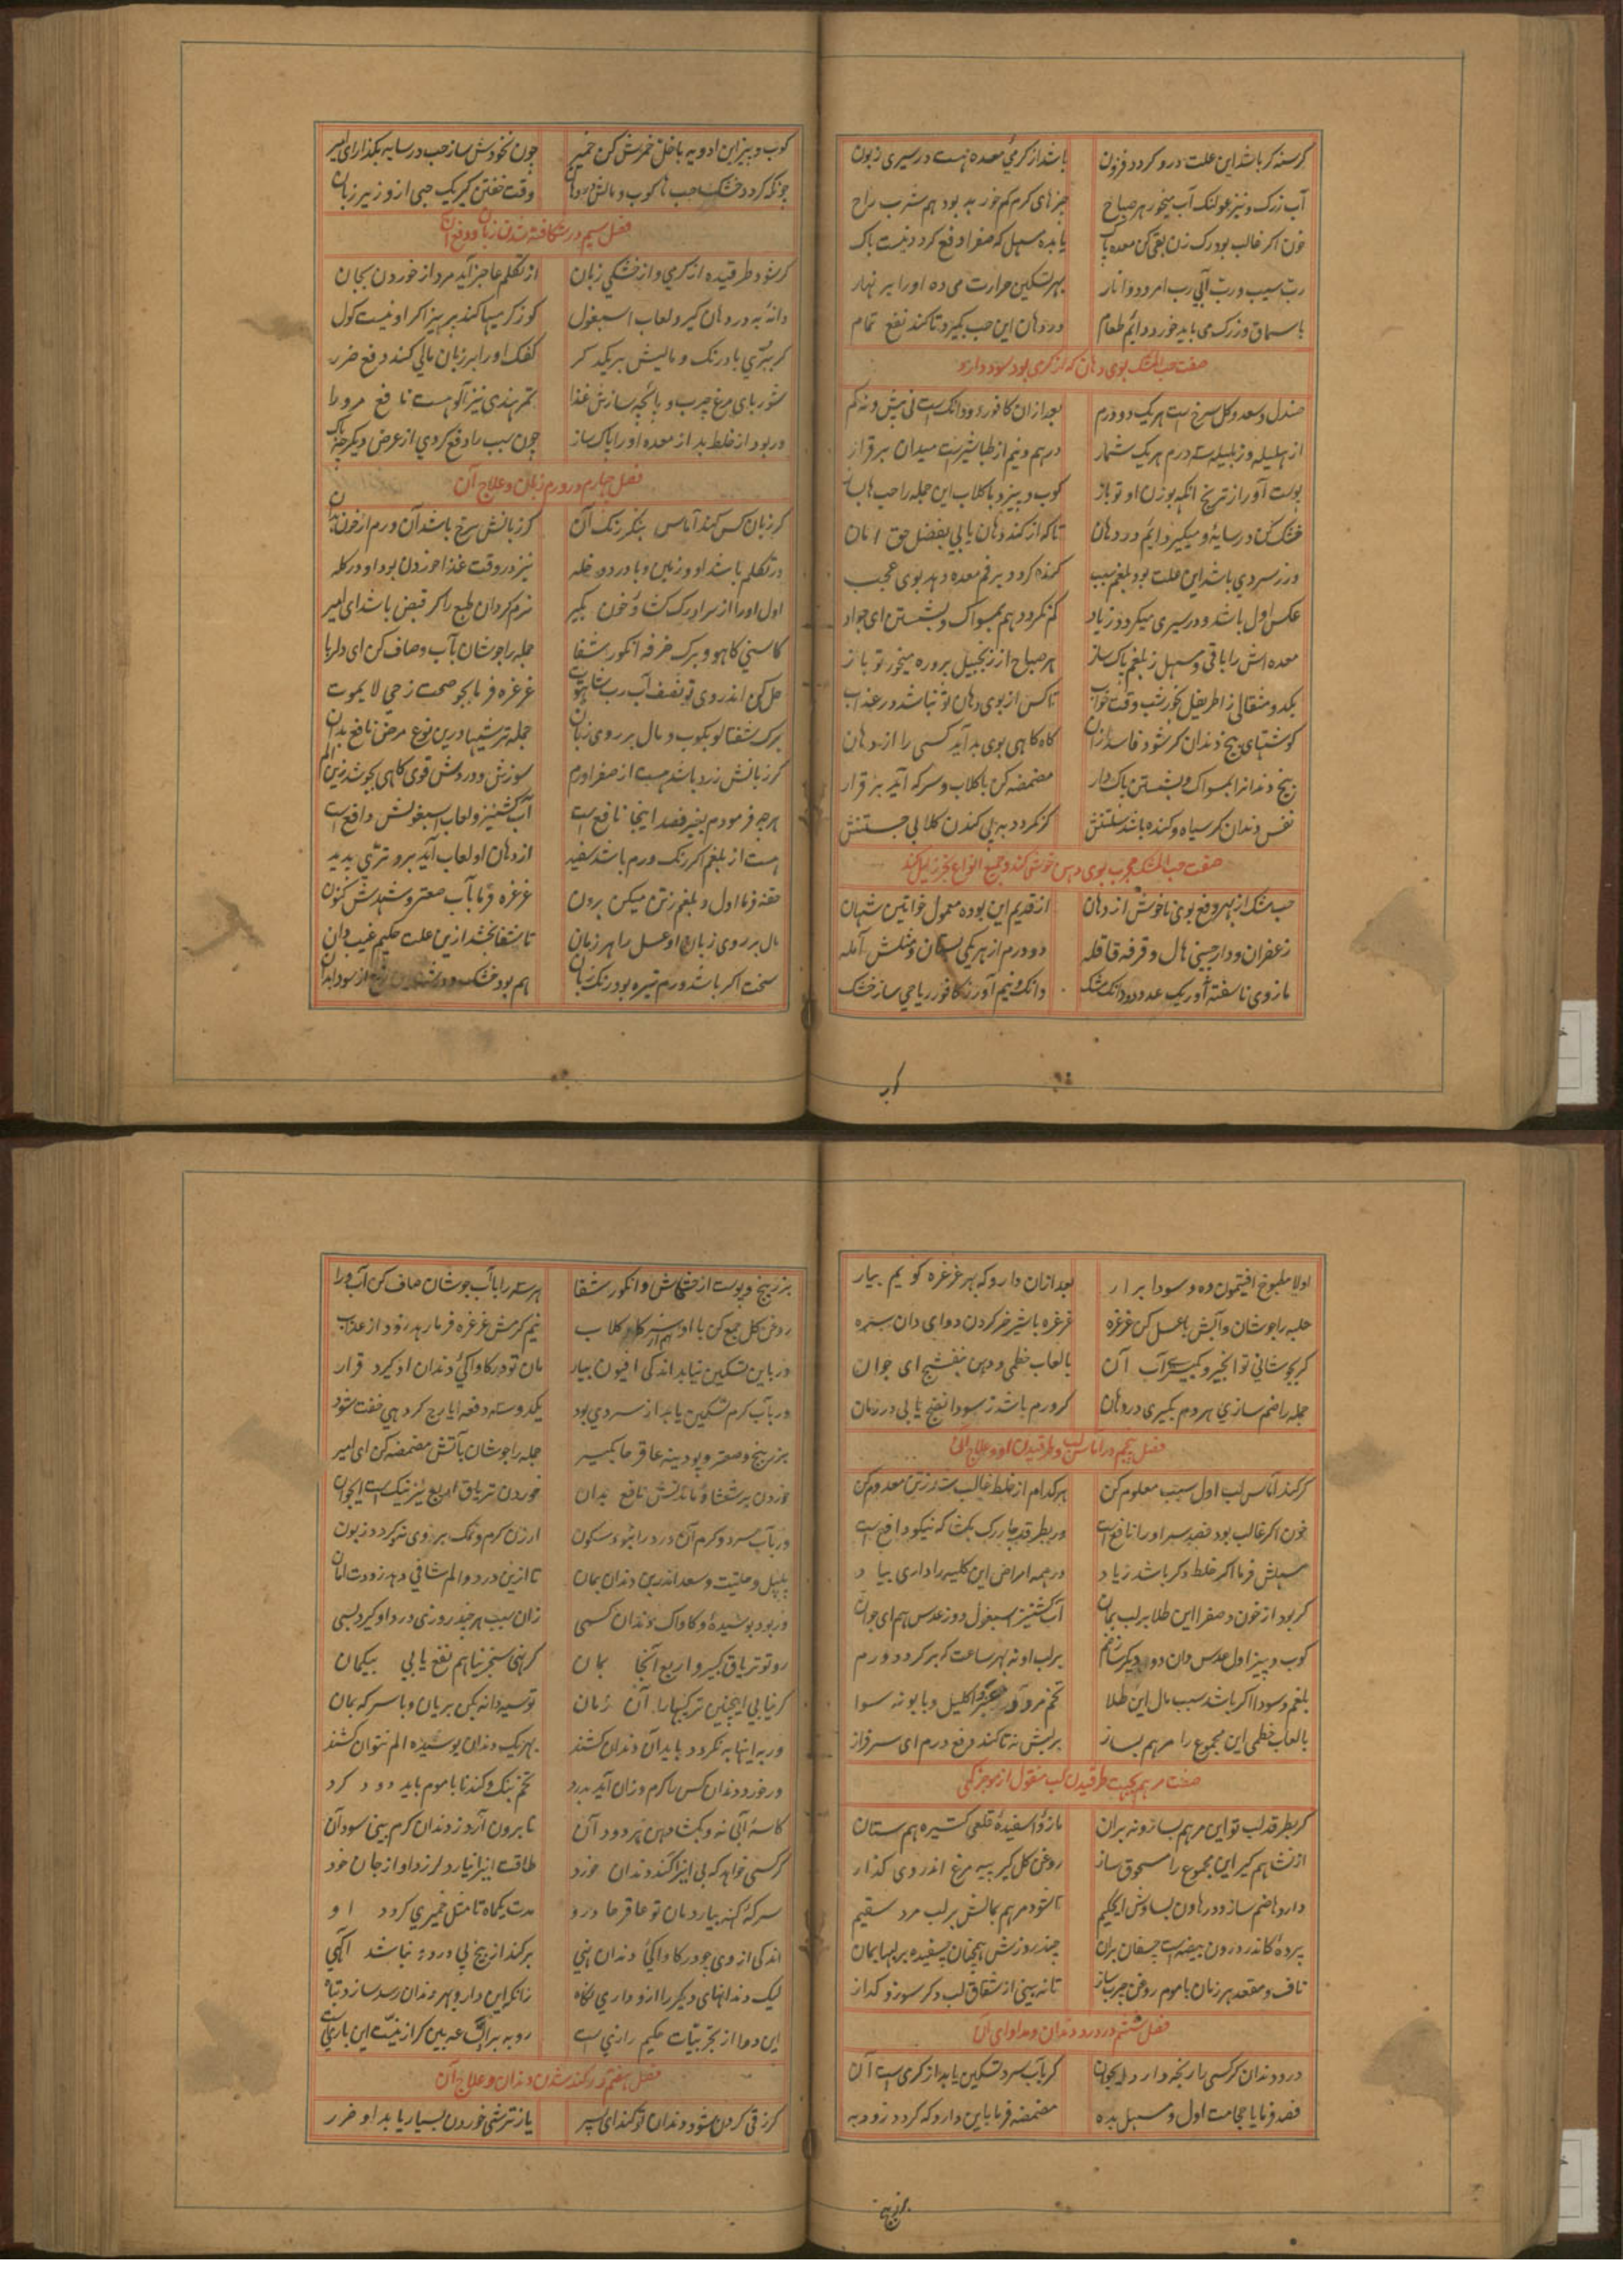 کرسنه کر باشد این علت درو کردد فزون باشد از کرمیٔ معده هست در سیری زبون
آب زرک و نیز غوک آب میخور هر صباح چیزهای کرم کم خور به بود هم شرب راح
خون اکر غالب بود رک زن بقی کن معده پاک یا بده مسهل که صفرا دفع کردد نیست باک
رب سیب و رب آبی رب امرود و انار بهر تسکین حرارت می ده او را بر نهار
با سماق و زرک می باید خورد دائم طعام در دهان این حب بگیرد تا کند نفع تمام
صفت حب المشک بوی دهان که از کرمی بود سود دارد
صندل و سعد و کل سرخ است هر یک دو درم بعد از آن کافور دو دانک است نی بیش و نه کم
از هلیله وز بلیله سه درم هر یک شمار درهم و نیم از طباشیرست میدان برقرار
پوست آور از ترنج آنکه بوزن او تو باز کوب و بیز و با کلاب این جمله را حب ها بساز
خشک کن در سایهٔ و میکیر دایم در دهان تا که از کند دهان یابی بفضل حق امان
ور ز سردی باشد این علت بود بلغم سبب کنده کردد بر فم معده دهد بوی عجب
عکس اول باشد و در سیری میکردد زیاد کم نکردد هم بمسواک و بشستن ای جواد
معده اش را باقی و مسهل ز بلغم پاک ساز هر صباح از زنجبیل پروره میخور تو باز
یکدو مثقالی ز اطریفل بخور شب وقت خواب تا کس از بوی دهان تو نباشد در عذاب
کوشتهای بیخ دندان کر شود فاسد ازان کاه کاهی بوی بد آید کسی را از دهان
بیخ دندانرا بمسواک و بشستن پاک دار مضمضه کن با کلاب و سرکه آید برقرار
نفس دندان کر سیاه و کنده باشد شستنش کر نکردد به پی کندن کلابی جستنش
صفت حب المشک مجرب بوی دهن خوش کند و جمیع انواع بخر زایل کند
حب مشک از بهر دفع بوی ناخوش از دهان از قدیم این بوده معمول خواتین شهان
زعفران و دارچینی هال و قرفه قاقله دو درم از هر یکی بستان و مثلش آمله
مازوی ناسفته آور یک عدد دو دانک مشک دانک و نیم آور ز کافور ریاحی ساز خشک
کوب
کوب و بیز این ادویه با خل خمرش کن خمیر چون نخودش ساز حب در سایه بکذار ای امیر
چونکه کردد خشک حب ها کوب و مالش در دهان وقت خفتن کیر یک حبی ازو زیر زبان
فصل سیم در شکافته شدن زبان و دفع آن
کر شود طرقیده از کرمی و از خشکی زبان از تکلم عاجز آید مرد از خوردن بجان
دانهٔ به در دهان کیر و لعاب اسپغول کوز کرمیها کند پرهیز اکر او نیست کول
کر ببری بادرنک و مالیش بر یکدکر کفک او را بر زبان مالی کند دفع ضرر
شوربای مرغ چرب و پاچه سازش غذا تمر هندی نیز آلو هست نافع مرو را
ور بود از خلط بد از معده او را پاک ساز چون سبب را دفع کردی از عرض دیکر چه باک
فصل چهارم در ورم زبان و علاج آن
کر زبان کس کند آماس بنکر رنک آن کر زبانش سرخ باشد آن ورم از خون بدان
در تکلم باشد او وزین و با درد و خله نیز در وقت غذا خوردن بود او در کله
اول او را از سر اورک کشا و خون بکیر نرم کردان طبع را کر قبض باشد ای امیر
کاسنی کاهو و برک خرفه انکور شفا جمله را جوشان بآب و صاف کن ای دلربا
حل کن اندر وی تو نصف آب رب شاه توت غرغره فرما بجو صحت ز حی لا یموت
برک شفتالو بکوب و مال بر روی زبان جمله ترشیها درین نوع مرض نافع بدان
کر زبانش زرد باشد هست از صفرا ورم سوزش و دردش قوی کاهی بجوشد زین الم
هر چه فرمودم بغیر فصد اینجا نافع است آب کشنیز و لعاب اسپغولش دافع است
هست از بلغم اکر رنک ورم باشد سفید از دهان او لعاب آید برو تری پدید
حقنه فرما اول و بلغم ز تن میکن برون غرغره فرما بآب صعتر و شهدش کنون
مال بر روی زبان او عسل را هر زمان تا شفا بخشد ازین علت حکیم غیب دان
سخت اکر باشد ورم تیره بود رنک زبان هم بود خشک و درشت این رنج از سودا بدان
اولا مطبوخ افتیمون ده و سودا برار بعد ازان دارو که بهر غرغره کویم بیار
حلبه را جوشان و آبش با عسل کن غرغره غرغره با شیر خر کردن دوای دان سره
کر بجوشانی تو انجیر و بکیری آب آن با لعاب خطمی و دهن بنفشج ای جوان
جمله را ضم سازی هر دم بکیری در دهان کر ورم باشد ز سودا نفع یابی در زمان
فصل پنجم در آماس لب و طرقیدن او و علاج آن
کر کند آماس لب اول سبب معلوم کن هر کدام از خلط غالب شد ز تن معدوم کن
خون اکر غالب بود فصد سر او را نافع است ور بطرقد چار رک بکشا که نیکو دافع است
مسهلش فرما اکر خلط دکر باشد زیاد در همه امراض این کلیه را داری بیاد
کر بود از خون و صفرا این طلا بر لب بمان آب کشنیز اسپغول و وز عدس هم ای جوان
کوب و بیز اول عدس دان دو دیکر ساز ضم بر لب او نه بهر ساعت که بر کردد ورم
بلغم و سودا اکر باشد سبب مال این طلا تخم مرو و اکلیل و بابونه سوا
با لعاب خطمی این مجموع را مرهم بساز بر لبش نه تا کند دفع ورم ای سرفراز
صفت مرهم بجهت طرقیدن لب منقول از موجز کی
کر بطرقد لب تو این مرهم بساز و نه بران مازو اسفیدهٔ قلعی کتیره هم ستان
از نشا هم کیر این مجموع را مسحوق ساز روغن کل کیر پیه مرغ اندر وی کداز
داروها ضم ساز و در هاون بساوش ای حکیم تا شود مرهم بمالش بر لب مرد سقیم
پردهٔ کاندر درون بیضه است چسفان بران چند روزش همچنان چسفیده بر لبها بمان
ناف و مقعد هر زمان با موم روغن چرب ساز تا نه بینی از شقاق لب دکر سوز و کداز
فصل ششم در درد دندان و مداوای آن
درد دندان کر کسی را رنجه دارد ای جوان کر بآب سرد تسکین یابد از کرمی است آن
فصد فرما یا حجامت اول و مسهل بده مضمضه فرما باین دارو که کردد زود به
بزر بنج
بزر بنج و پوست از خشخاش و انکور شفا هر سه را با آب جوشان صاف کن آب ورا
روغن کل جمع کن با او و هم از کلاب نیم کرمش غرغره فرما رهد زود از عذاب
ور باین تسکین نیابد اندکی افیون بیار مان تو در کاواکیٔ دندان او کیرد قرار
ور بآب کرم تسکین یابد از سردی بود یکدو سه دفعه ایارج کر دهی خفت شود
بزر بنج و صعتر و پودینه عاقرحا بکیر جمله را جوشان بآتش مضمضه کن ای امیر
خوردن برشعثا و مانندش نافع بدان خوردن تریاق اربع نیز نیک است ای جوان
ور بآب سرد و کرم آن درد را نبود سکون ارزن کرم و نمک بر روی نه کردد زبون
پلپل و حلتیت و سعد اندر بن دندان بمان تا ازین درد و الم شافی دهد زودت امان
ور بود پوشیدهٔ و کاواک دندان کسی زان سبب هر چند روزی درد او کیرد بسی
رو تو تریاق کبیر و اربع آنجا بمان کر نهی سنجرنیا هم نفع یابی بیکمان
کر نیابی اینچنین ترکیبها را آن زمان تو سیه دانه بکن بریان و با سرکه بمان
ور به اینها به نکردد باید آن دندان کشند بهر یک دندان پوشیده الم نتوان کشند
ور خورد دندان کس را کرم وزان آید بدرد تخم بنک و کندنا با موم باید دود کرد
کاسهٔ آبی نه و بکشا دهن بر دود آن تا برون آرد ز دندان کرم بینی سود آن
کر کسی خواهد که بی انبر کند دندان خود طاقت انبر نیارد لرزد او از جان خود
سرکهٔ کهنه بیار و مان تو عاقرحا درو مدت یکماه تا مثل خمیری کردد او
اندکی از وی چو در کاواکیٔ دندان نهی برکند از بیخ بی درد و نباشد آکهی
لیک دندانهای دیکر را ازو داری نکاه زانکه این دارو بهر دندان رسد سازد تباه
این دوا از تجربیات حکیم رازی است
فصل هفتم در کند شدن دندان و علاج آن
کر ز قی کردن شود دندان تو کند ای پسر یا ز ترشی خوردن بسیار یابد او ضرر